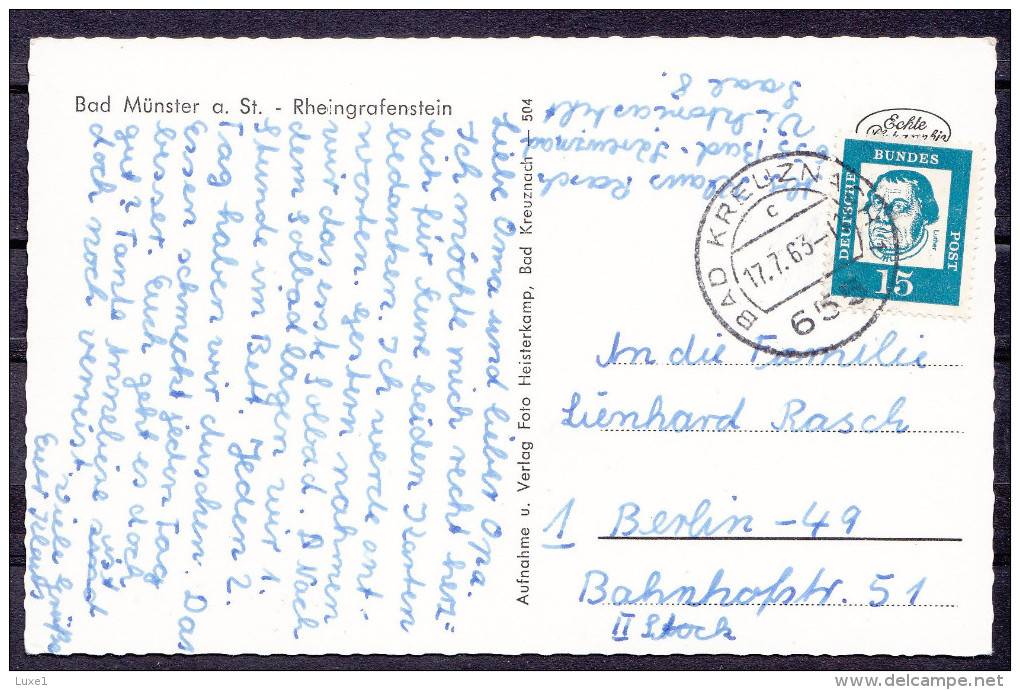 Bad Münster a. St. - Rheingrafenstein
Liebe Oma und lieber Opa.
Ich möchte mich recht herz-
lich für Eure beiden Karten
bedanken. Ich werde ant-
worten. Gestern nahmen
wir das erste Solbad. Nach
dem Solbad lagen wir 1.
Stunde im Bett. Jeden 2.
Tag haben wir duschen. Das
Essen schmeckt jeden Tag
besser. Euch geht es doch
gut? Tante Anneliese ist
doch noch verreist
Viele Grüße
Euer Klaus
Aufnahme u. Verlag Foto Heisterkamp, Bad Kreuznach — 504
Klaus Rasch
655 Bad Kreuznach
Viktoriastift
Saal 8.
Echte
BAD KREUZNACH
c
17.7.63-
655
DEUTSCHE
BUNDES
POST
Luther
15
An die Familie
Lienhard Rasch
1 Berlin-49
Bahnhofstr. 51
II Stock
Luxe1
delcampe.net